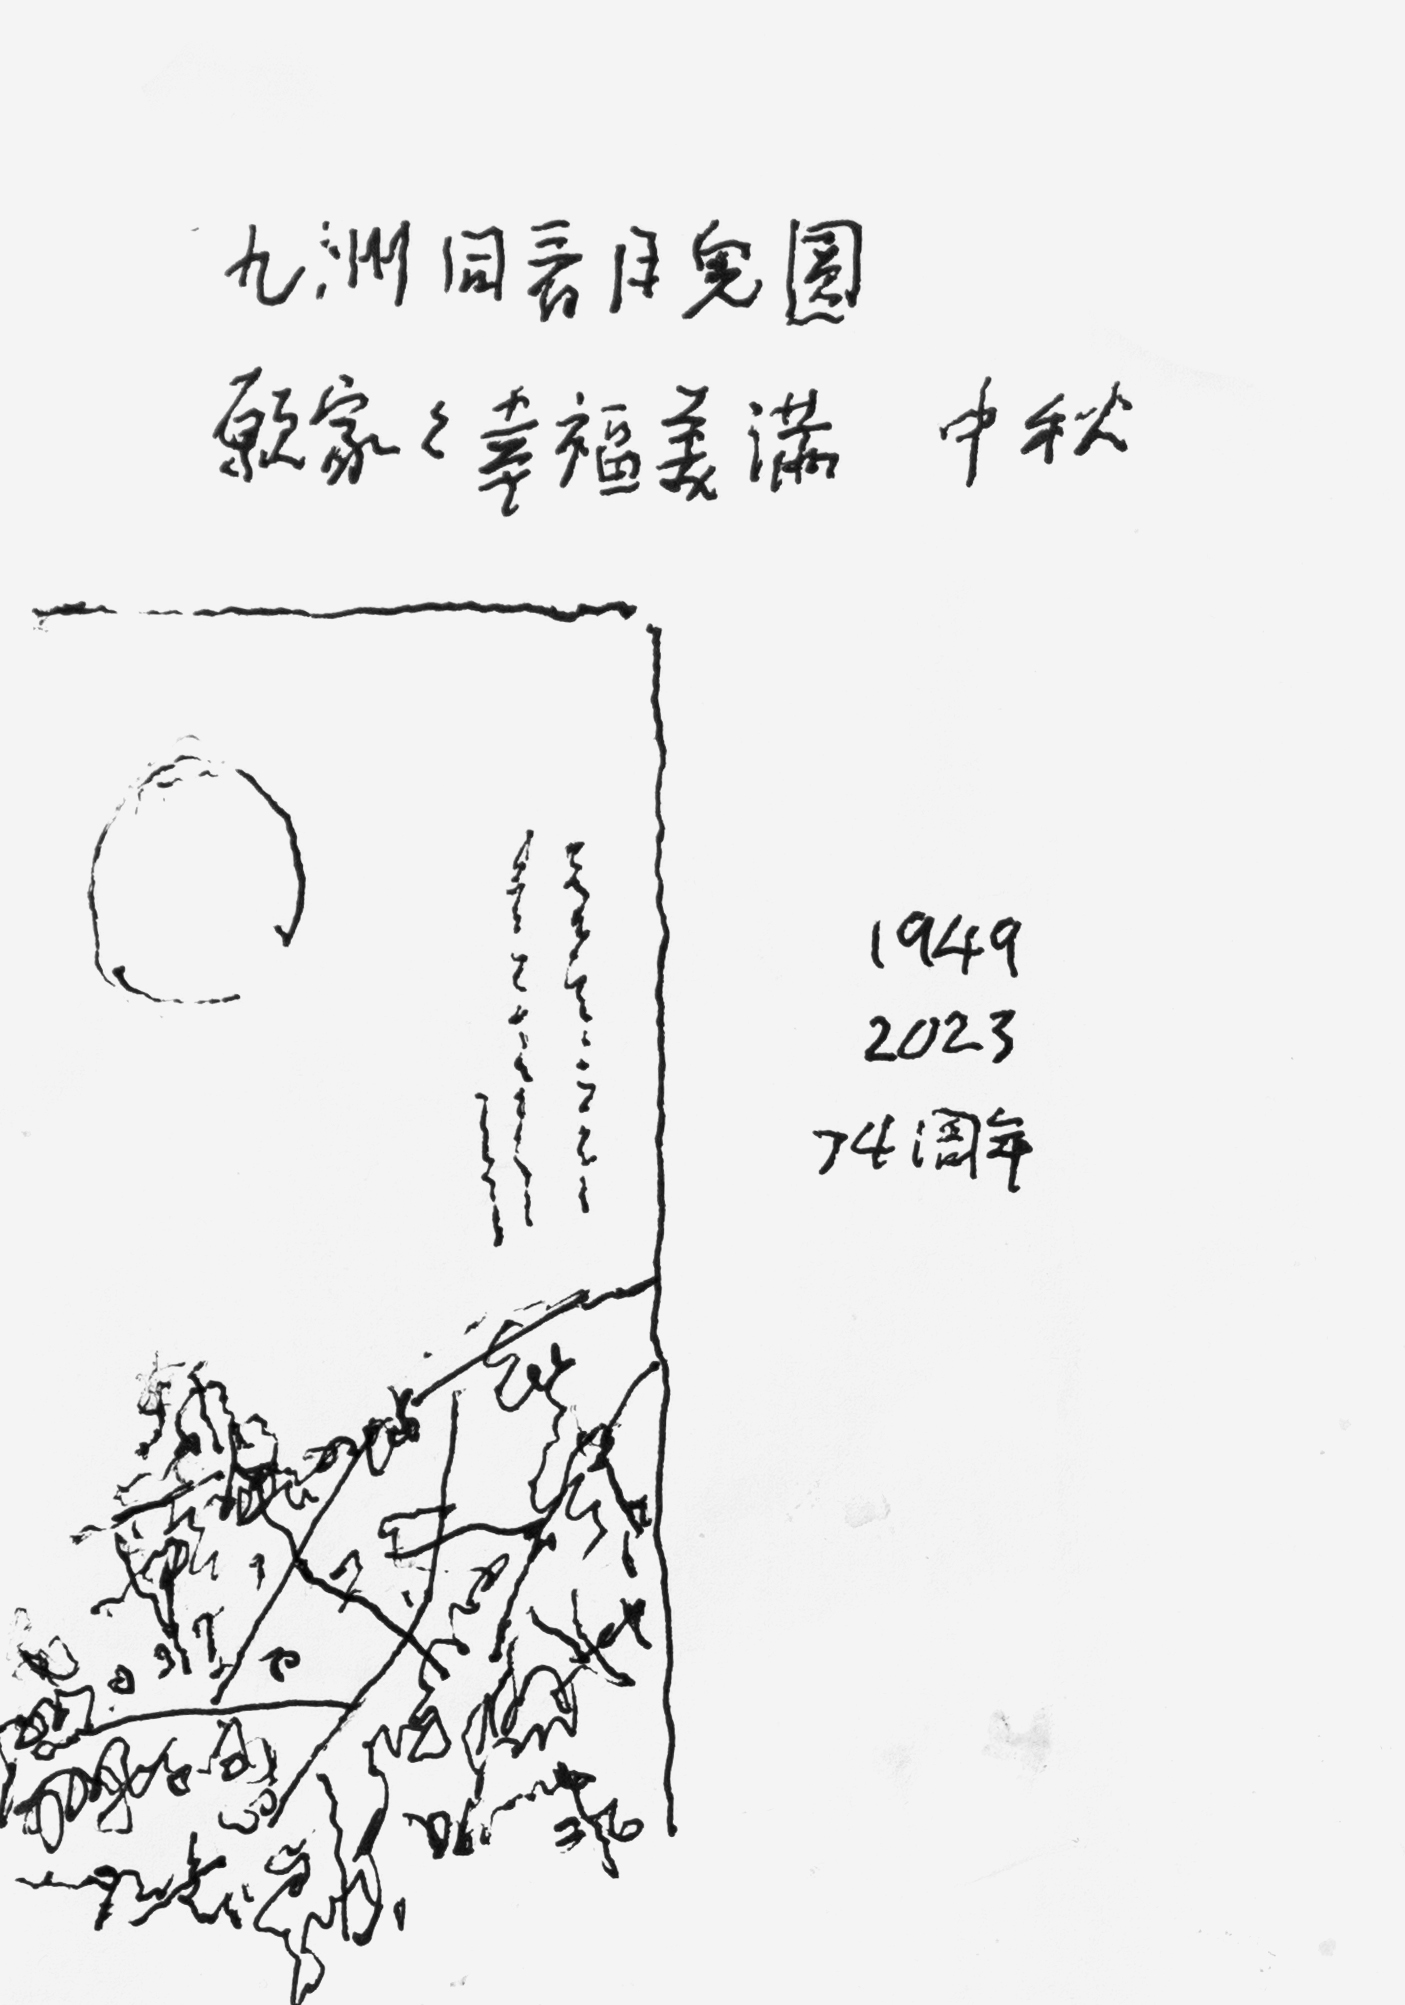 九洲同辰月兒圓
願家々幸福美滿 中秋
1949
2023
74周年